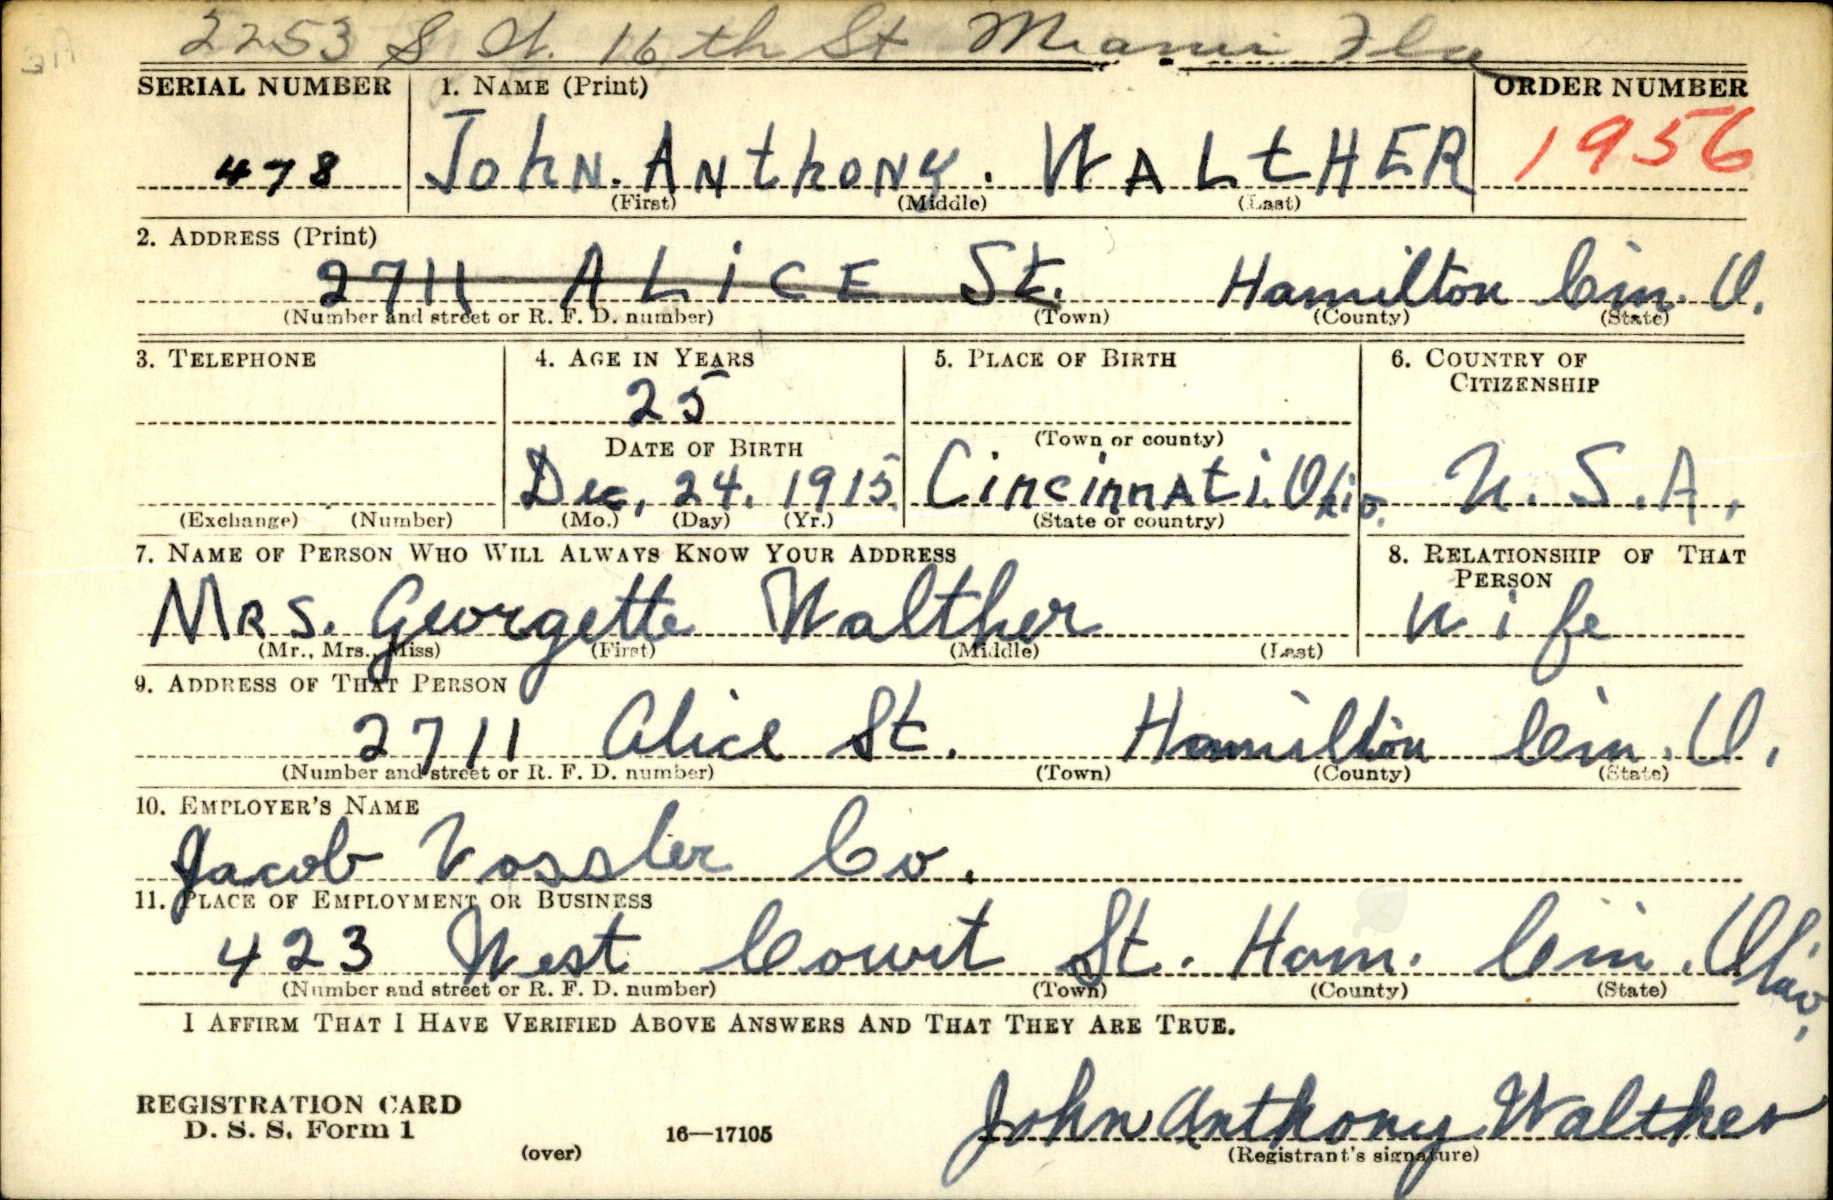 2253 S W. 16th St Miami Fla
SERIAL NUMBER 1. NAME (Print) ORDER NUMBER
478 JohN. ANthoNy. WALtHER 1956
(First) (Middle) (Last)
2. ADDRESS (Print)
2711 ALiCE St. Hamilton Cin. O.
(Number and street or R. F. D. number) (Town) (County) (State)
3. TELEPHONE 4. AGE IN YEARS 5. PLACE OF BIRTH 6. COUNTRY OF CITIZENSHIP
25
DATE OF BIRTH (Town or county)
Dec, 24. 1915. CincinnAti. Ohio. U. S. A.
(Exchange) (Number) (Mo.) (Day) (Yr.) (State or country)
7. NAME OF PERSON WHO WILL ALWAYS KNOW YOUR ADDRESS 8. RELATIONSHIP OF THAT PERSON
MRS. Georgette Walther Wife
(Mr., Mrs., Miss) (First) (Middle) (Last)
9. ADDRESS OF THAT PERSON
2711 Alice St. Hamilton Cin. O.
(Number and street or R. F. D. number) (Town) (County) (State)
10. EMPLOYER'S NAME
Jacob Vossler Co.
11. PLACE OF EMPLOYMENT OR BUSINESS
423 West Court St. Ham. Cin. Ohio,
(Number and street or R. F. D. number) (Town) (County) (State)
I AFFIRM THAT I HAVE VERIFIED ABOVE ANSWERS AND THAT THEY ARE TRUE.
REGISTRATION CARD
D. S. S. Form 1
(over) 16—17105
John Anthony Walther
(Registrant's signature)